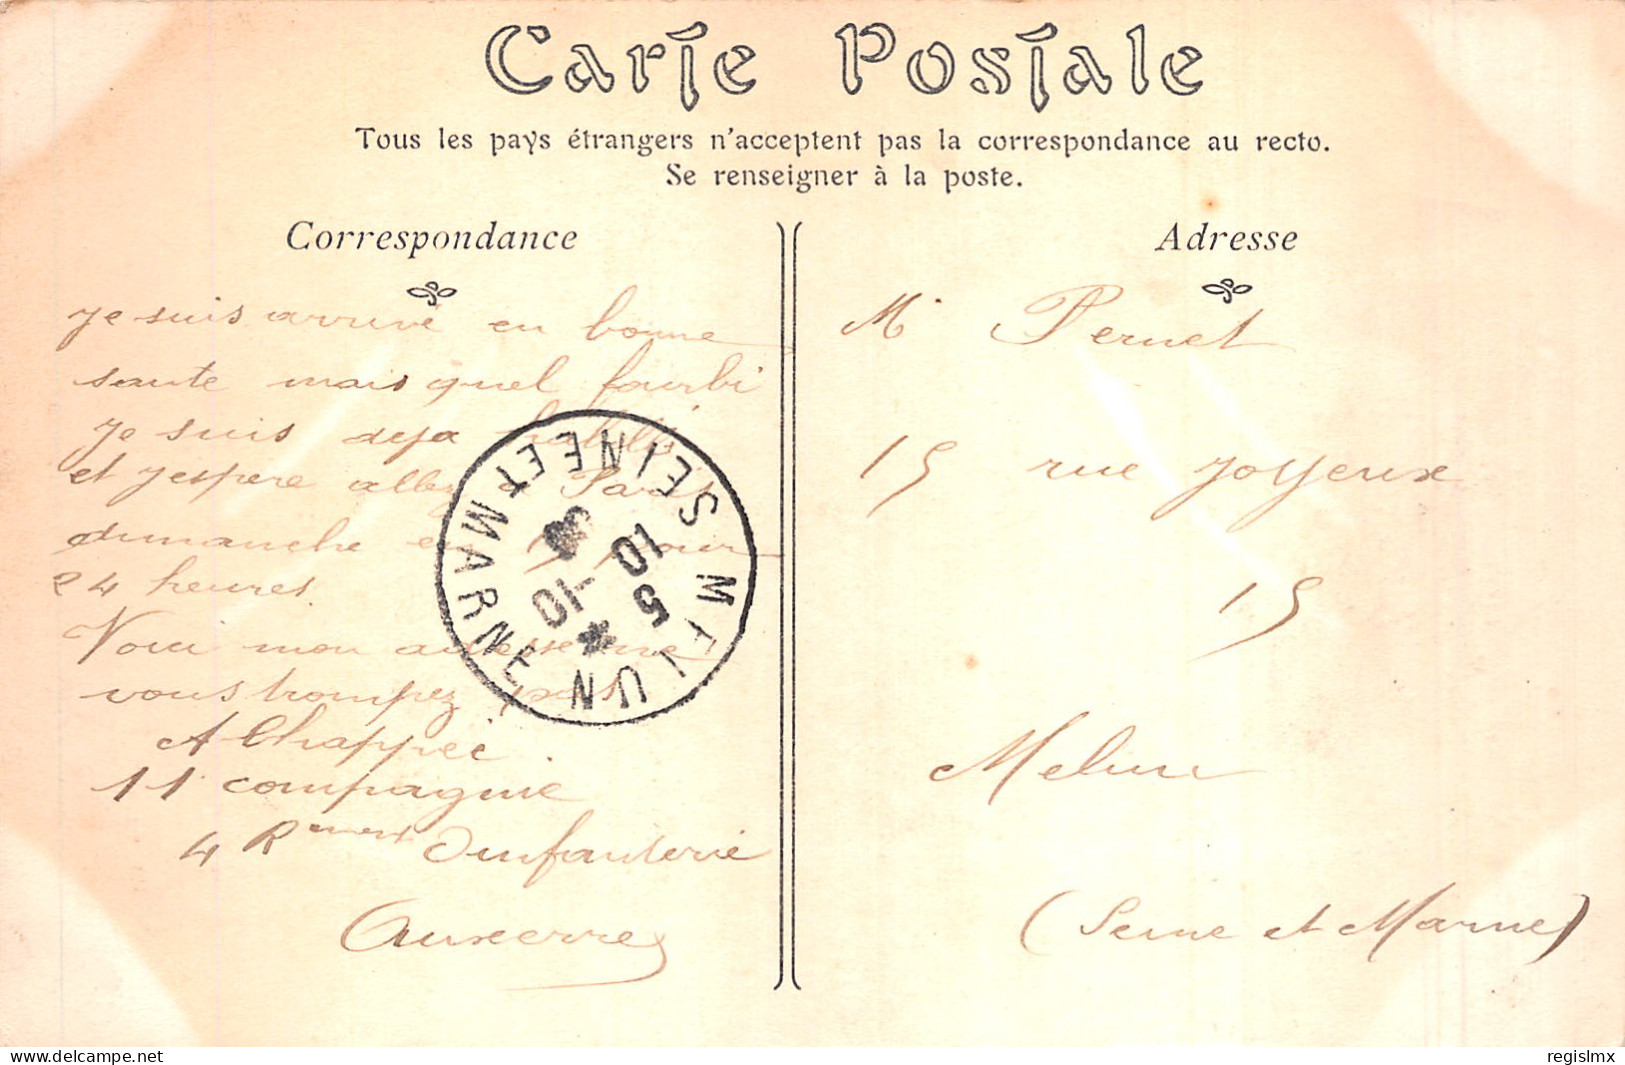 Carte Postale
Tous les pays étrangers n'acceptent pas la correspondance au recto.
Se renseigner à la poste.
Correspondance
Je suis arrivé en bonne
sante mais quel fourbi
Je suis deja habillé
et j'espere allez a Paris
dimanche en pour
24 heures.
Voici mon adresse ne
vous trompez pas
A Chappée
11 compagnie
4 Rement Dinfanterie
Auxerre
Adresse
Mr Pernet
15 rue Joyeux
15
Melun
(Seine et Marne)
MELUN SEINE ET MARNE
10
5 -10
delcampe.net
regislmx